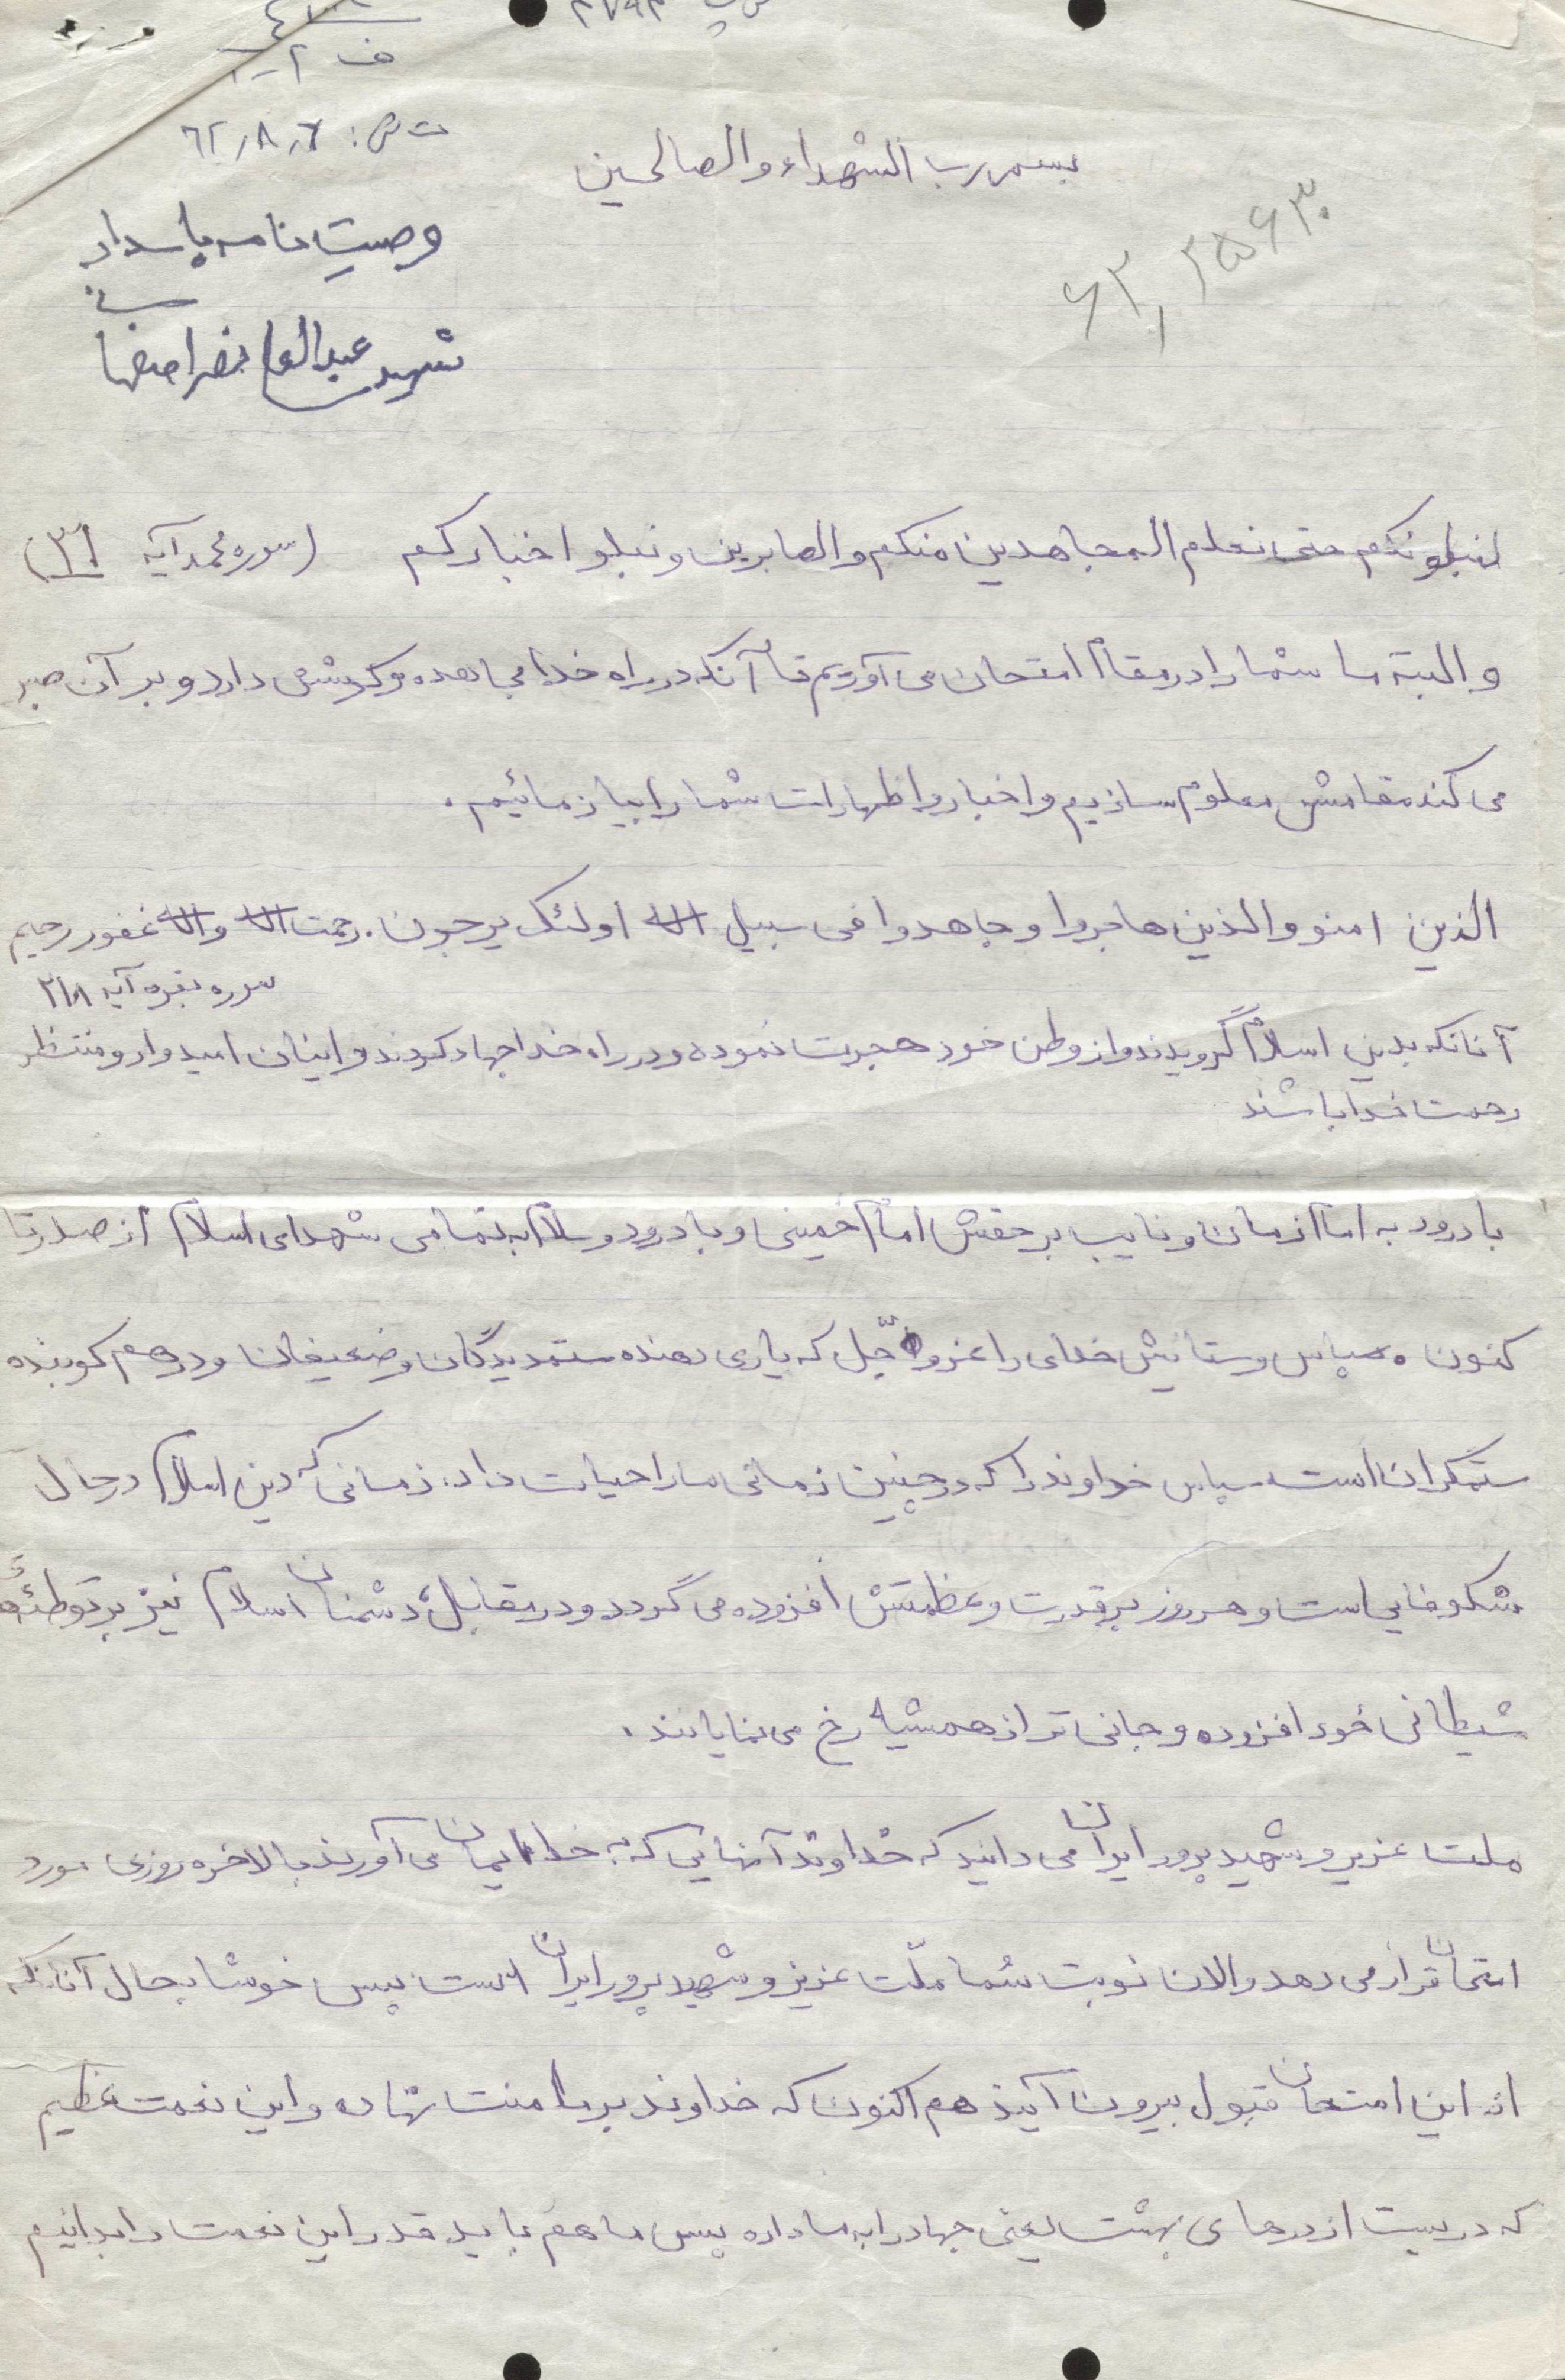 ف ٢-٦
ت ش: ٦٢٫٨٫٧
بسم رب الشهداء والصالحین
۶۲٫۲۵۶۳۰
وصیت نامه پاسدار
شهید عبدالعلی نصراصفهانی
لنبلونکم حتی نعلم المجاهدین منکم والصابرین ونبلو اخبارکم (سوره محمد آیه ۳۱)
والبته ما شما را در مقام امتحان می آوریم تا آنکه در راه خدا مجاهده و کوشش دارد و بر آن صبر
می کند مقامش معلوم سازیم و اخبار و اظهارات شما را بیازمائیم.
الذین امنو والذین هاجروا وجاهدوا فی سبیل الله اولئک یرجون. رحمت الله والله غفور رحیم
سوره بقره آیه ۲۱۸
آنانکه بدین اسلام گرویدند و از وطن خود هجرت نموده و در راه خدا جهاد کردند و اینان امیدوار و منتظر
رحمت خدا باشند
با درود به امام زمان و نایب برحقش امام خمینی و با درود و سلام به تمامی شهدای اسلام از صدر تا
کنون . سپاس و ستایش خدای را عزو جّل که یاری دهنده ستمدیدگان و ضعیفان و درهم کوبنده
ستمگران است. سپاس خداوند را که در چنین زمانی ما را حیات داد. زمانی که دین اسلام در حال
شکوفایی است و هر روز بر قدرت و عظمتش افزوده می گردد و در مقابل، دشمنان اسلام نیز بر توطئهٔ
شیطانی خود افزوده و جانی تر از همشیه رخ می نمایانند.
ملت عزیز و شهید پرور ایران می دانید که خداوند آنهایی که به خدا ایمان می آورند بالاخره روزی مورد
امتحان قرار می دهد والان نوبت شما ملّت عزیز و شهید پرور ایران است پس خوشا بحال آنانکه
از این امتحان قبول بیرون آیند هم اکنون که خداوند بر ما منت نهاده و این نعمت عظیم
که دریست از درهای بهشت یعنی جهاد را به ما داده پس ما هم باید قدر این نعمت را بدانیم